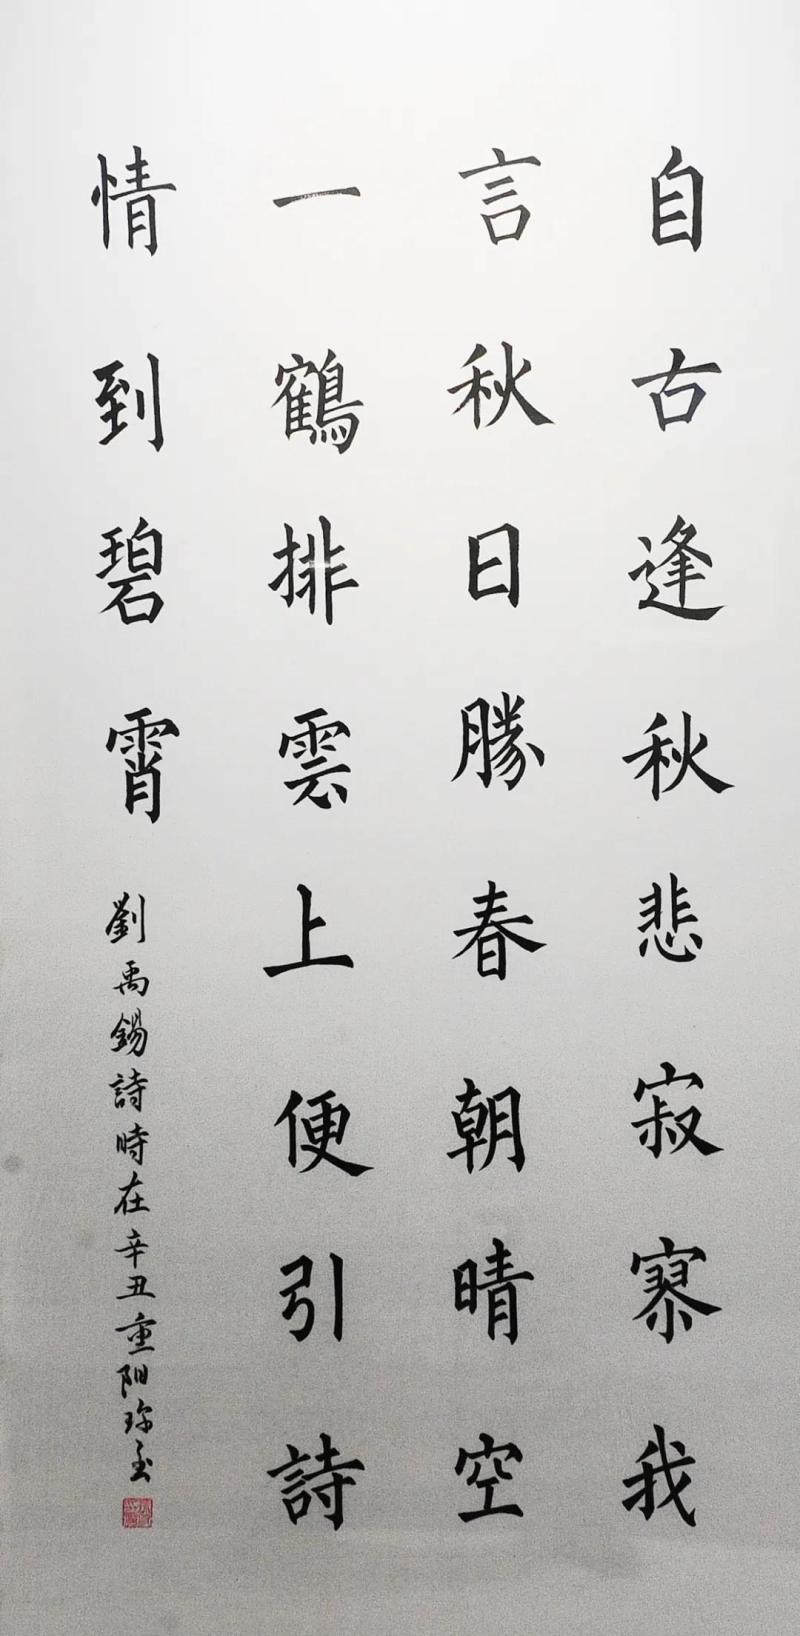 自古逢秋悲寂寥我
言秋日勝春朝晴空
一鶴排雲上便引詩
情到碧霄
劉禹錫詩時在辛丑重阳